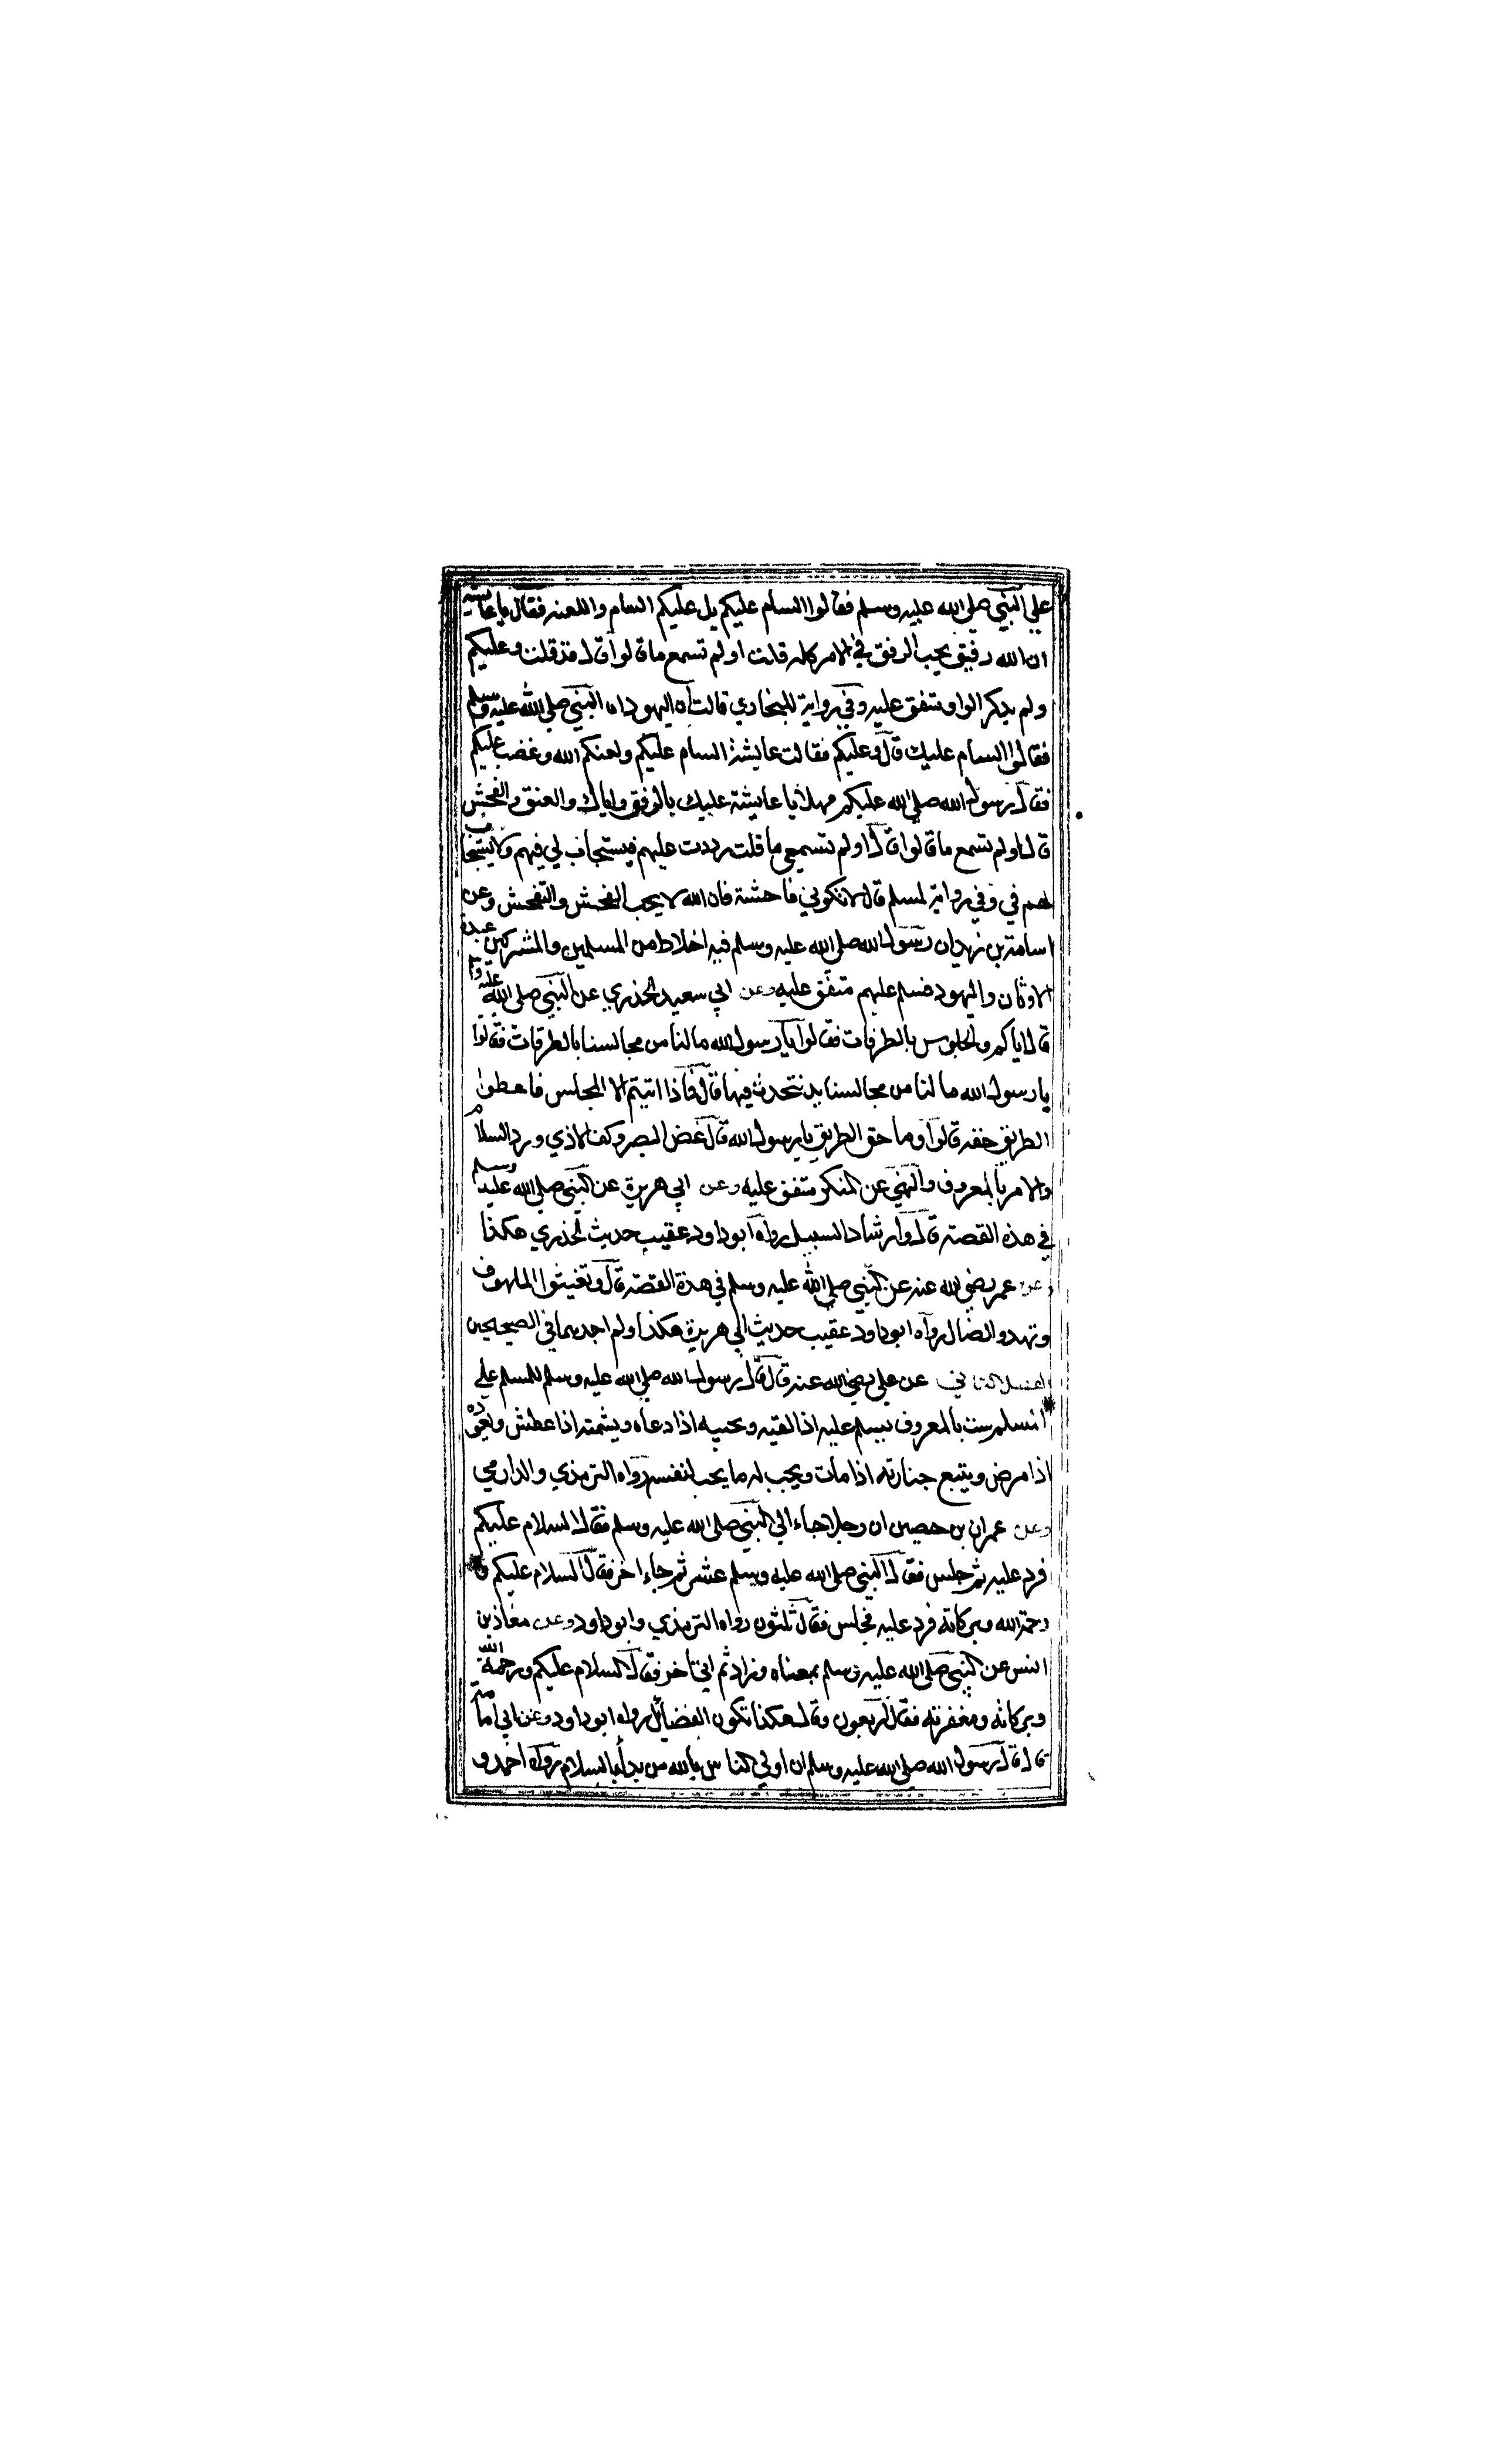 علي النبي صلي الله عليه وسلم فقالوا السام عليكم بل عليكم السام واللعنه فقال يا عايشه
ان الله رفيق يحب الرفق في الامر كله قلت اولم تسمع ما قالوا قال قد قلت وعليكم
ولم يذكر الواو متفق عليه وفي رواية للبخاري قالت ان اليهود اه النبي صلي الله عليه وسلم
فقالوا السام عليك قال وعليكم فقالت عايشة السام عليكم ولعنكم الله وغضب عليكم
فقال رسول الله صلي الله عليكم مهلا يا عايشة عليك بالرفق واياك والعنق والفحش
قالت اولم تسمع ما قالوا قال اولم تسمعي ما قلت رددت عليهم فيستجاب لي فيهم ولا يستجاب
لهم في وفي رواية لمسلم قال لا تكوني فاحشة فان الله لا يحب الفحش والتفحش وعن
اسامة بن زيد ان رسول الله صلي الله عليه وسلم فيه اخلاط من المسلمين والمشركين عبدة
الاوثان واليهود فسلم عليهم متفق عليه وعن ابي سعيد الخدري عن النبي صلي الله عليه وسلم
قال اياكم والجلوس بالطرقات فقالوا يا رسول الله ما لنا من مجالسنا بالطرقات فقالوا
يا رسول الله ما لنا من مجالسنا بد نتحدث فيها قال فاذا اتيتم الا المجلس فاعطوا
الطريق حقه قالوا وما حق الطريق يا رسول الله قال غض البصر وكف الاذي ورد السلام
والامر بالمعروف والنهي عن المنكر متفق عليه وعن ابي هريرة عن النبي صلي الله عليه وسلم
في هذه القصة قال وارشاد السبيل رواه ابوداود عقيب حديث الخدري هكذا
وعن عمر رضي الله عنه عن النبي صلي الله عليه وسلم في هذة القصة قال وتغيثوا الملهوف
وتهدوا الضال رواه ابوداود عقيب حديث ابي هريرة هكذا ولم اجدهما في الصحيحين
الفصل الثاني عن علي رضي الله عنه قال قال رسول الله صلي الله عليه وسلم للمسلم علي
المسلم ست بالمعروف يسلم عليه اذا لقيه ويجيبه اذا دعاه ويشمته اذا عطش ويعوده
اذا مرض ويتبع جنازته اذا مات ويحب له ما يحب لنفسه رواه الترمذي والدارمي
وعن عمران بن حصين ان رجلا جاء الي النبي صلي الله عليه وسلم فقال السلام عليكم
فرد عليه ثم جلس فقال النبي صلي الله عليه وسلم عشر ثم جاء اخر فقال السلام عليكم و
رحمة الله وبركاته فرد عليه فجلس فقال ثلثون رواه الترمذي وابوداود وعن معاذ بن
انس عن النبي صلي الله عليه وسلم بمعناه وزاد ثم اتي اخر فقال السلام عليكم ورحمة الله
وبركاته ومغفرته فقال اربعون وقال هكذا تكون الفضائل رواه ابوداود وعن ابي امامة
قال قال رسول الله صلي الله عليه وسلم ان اولي الناس بالله من بدأ بالسلام رواه احمد و